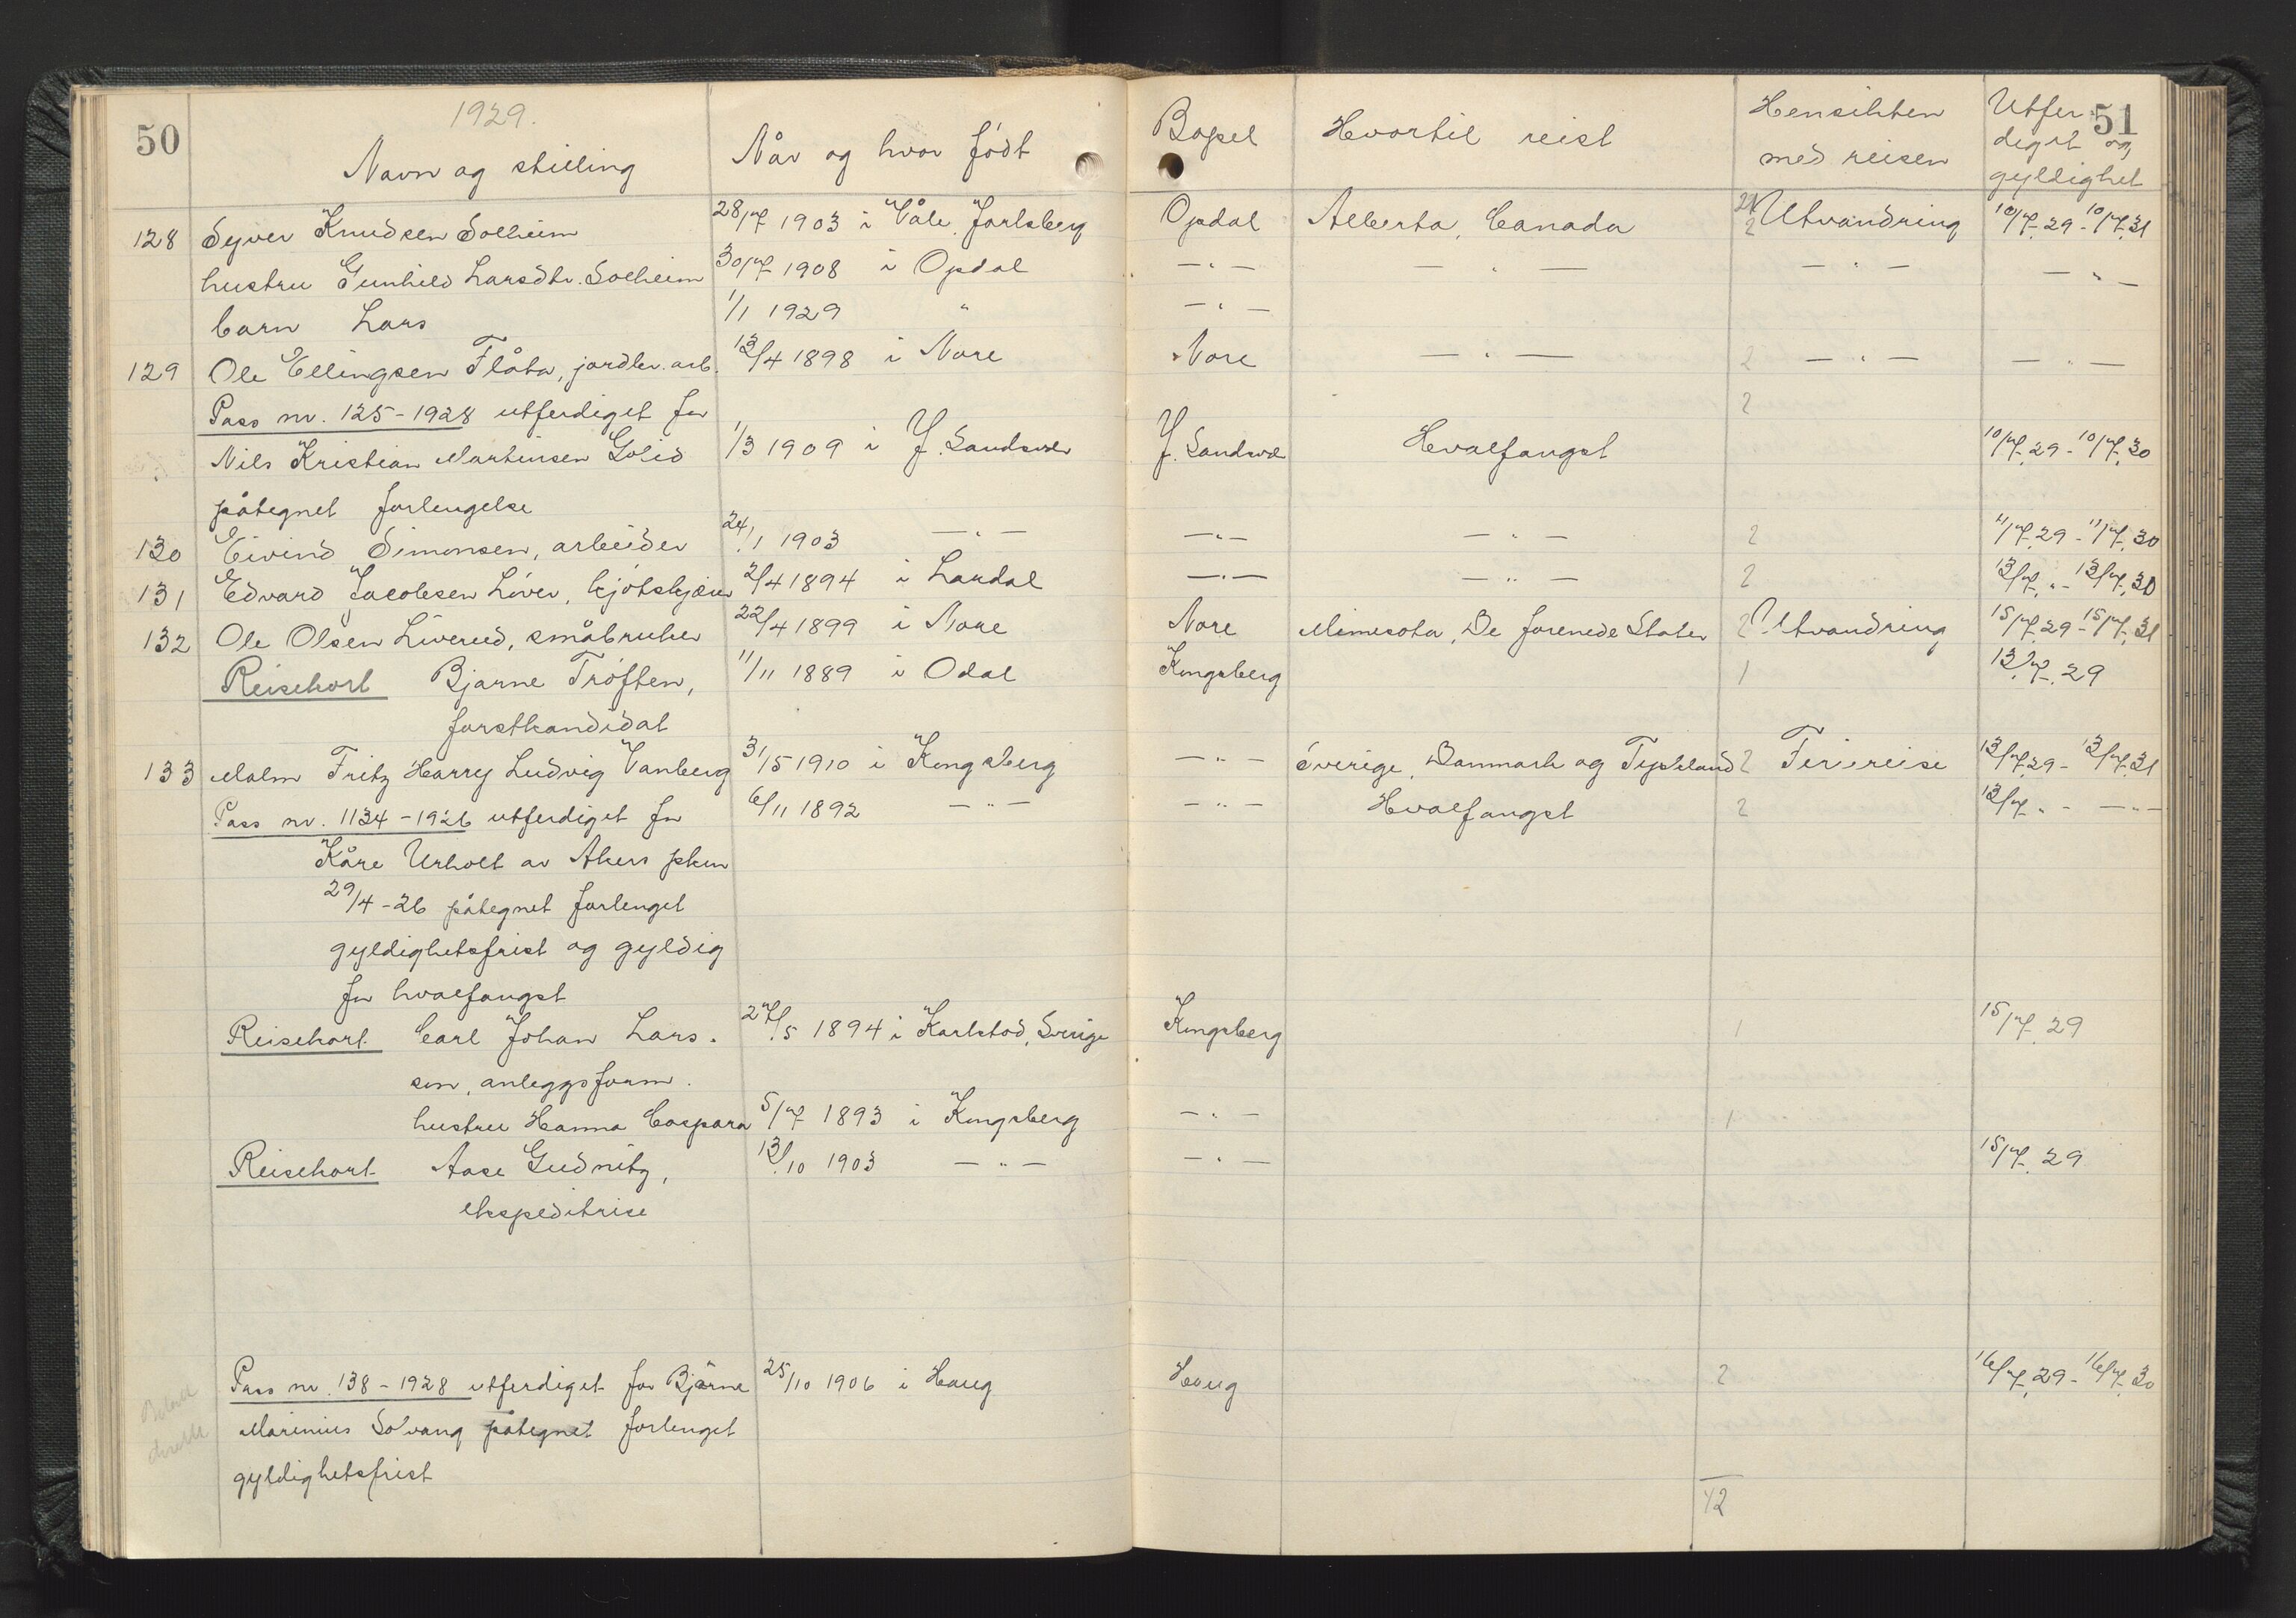 50
1929.
Navn og stilling
Når og hvor født
Bopel
Hvortil reist
Hensikten
med reisen
Utfer
51
diget og
gyldighet
128 Syver Knudsen Solheim 28/7 1903 i Våle, Jarlsberg Opdal Alberta, Canada 2 Utvandring 10/7.29 - 10/7.31
hustru Gunhild Larsdtr. Solheim 30/7 1908 i Opdal — " — — " — — " — — " —
barn Lars 1/1 1929 " — " —
129 Ole Ellingsen Flåta, jordbr. arb. 13/4 1898 i Nore Nore — " — 2 — " — — " —
Pass nr. 125 - 1928 utferdiget for 2
Nils Kristian Martinsen Golid 1/3 1909 i Y. Sandsvær Y. Sandsvæ Hvalfangst 10/7.29 - 10/7.30
påtegnet forlengelse
130 Eivind Simonsen, arbeider 24/1 1903 — " — — " — — " — 2 11/7.29 - 11/7.30
131 Edvard Jacobsen Løver, kjøtskjærer 2/4 1894 i Lardal — " — — " — 2 13/7. " - 13/7.30
132 Ole Olsen Liverud, småbruker 22/4 1899 i Nore Nore Minnesota, De forenede Stater 2 Utvandring 15/7.29 - 15/7.31
Reisekort Bjarne Trøften, 11/11 1889 i Odal Kongsberg 1 13/7.29
forstkandidat
133 Malm Fritz Harry Ludvig Vanberg 31/5 1910 i Kongsberg — " — Sverige, Danmark og Tyskland 2 Feriereise 13/7.29 - 13/7.31
Pass nr. 1134 - 1926 utferdiget for 6/11 1892 — " — — " — Hvalfangst 2 13/7. " - — " —
Kåre Urholt av Akers pkm
29/4 - 26 påtegnet forlenget
gyldighetsfrist og gyldig
for hvalfangst
Reisekort Carl Johan Lars. 27/5 1894 i Karlstad, Sverige Kongsberg 1 15/7.29
sen, anleggsform.
hustru Hanna Caspara 5/7 1893 i Kongsberg — " — 1
Reisekort Aase Gudnitz, 13/10 1903 — " — — " — 15/7.29
ekspeditrise
Pass nr. 138 - 1928 utferdiget for Bjarne 25/10 1906 i Haug Haug 2 16/7.29 - 16/7.30
Marinius Solvang påtegnet forlenget
gyldighetsfrist
42